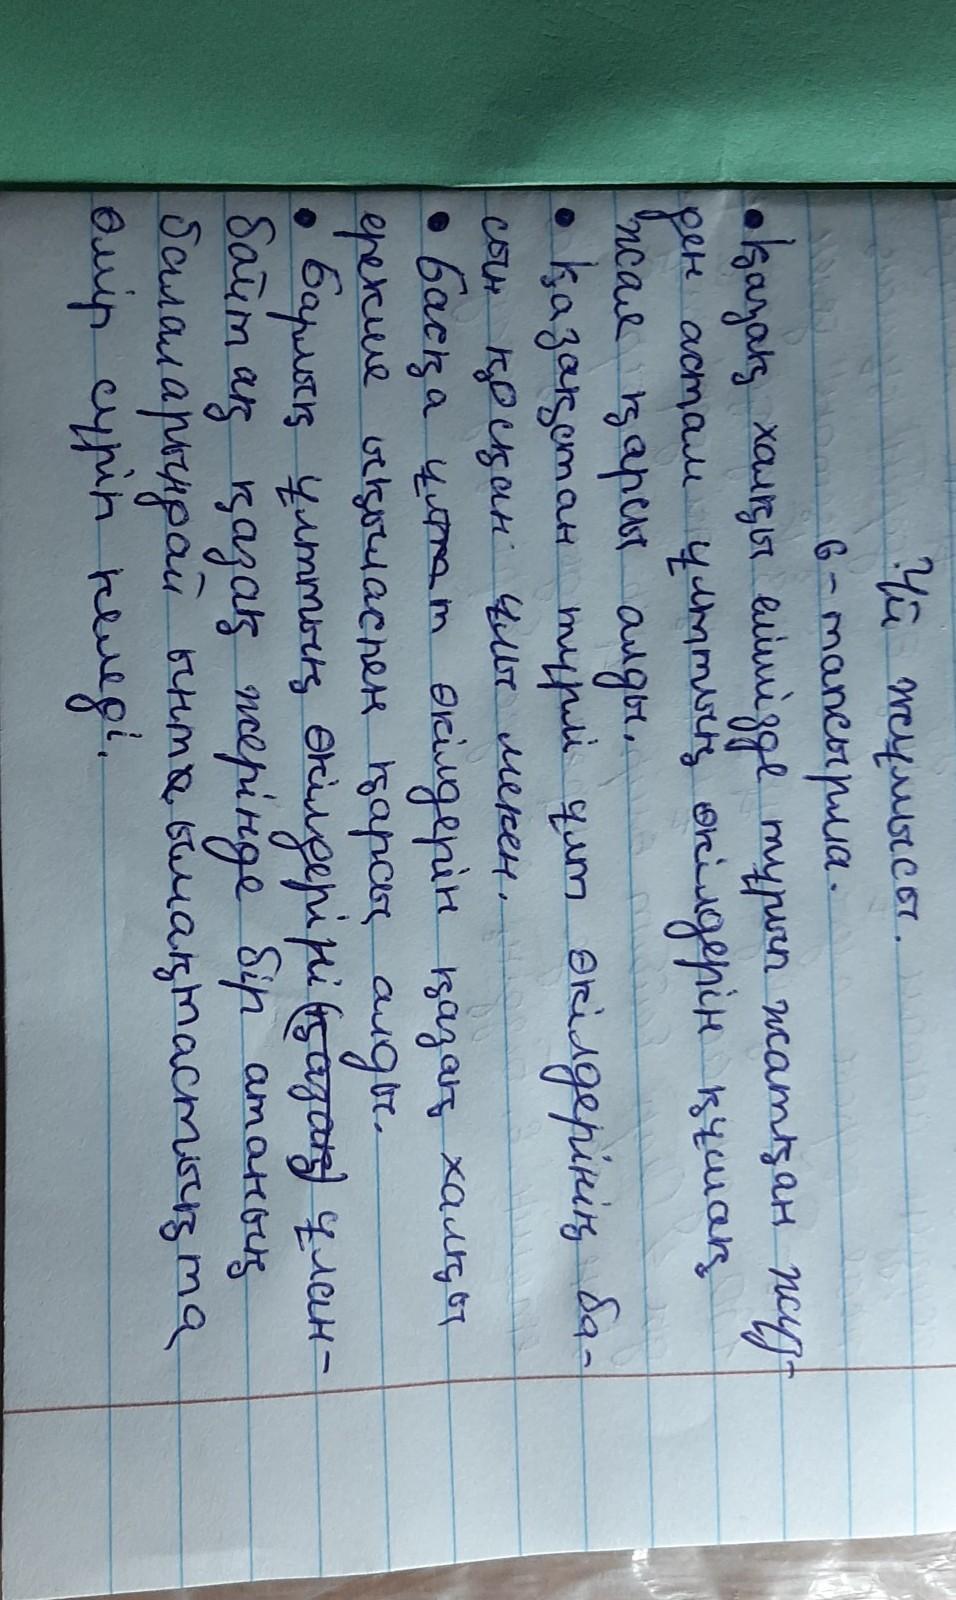 Үй жұмысы.
6-тапсырма.
• Қазақ халқы елімізде тұрып жатқан жүз-
ден астам ұлттың өкілдерін құшақ
жая қарсы алды.
• Қазақстан түрлі ұлт өкілдерінің ба-
сын қосқан ұлы мекен.
• Басқа ұлт өкілдерін қазақ халқы
ерекше ықыласпен қарсы алды.
• Барлық ұлттың өкілдері (қазақ) ұлан-
байтақ қазақ жерінде бір атаның
балаларындай ынтымақтастықта
өмір сүріп келеді.